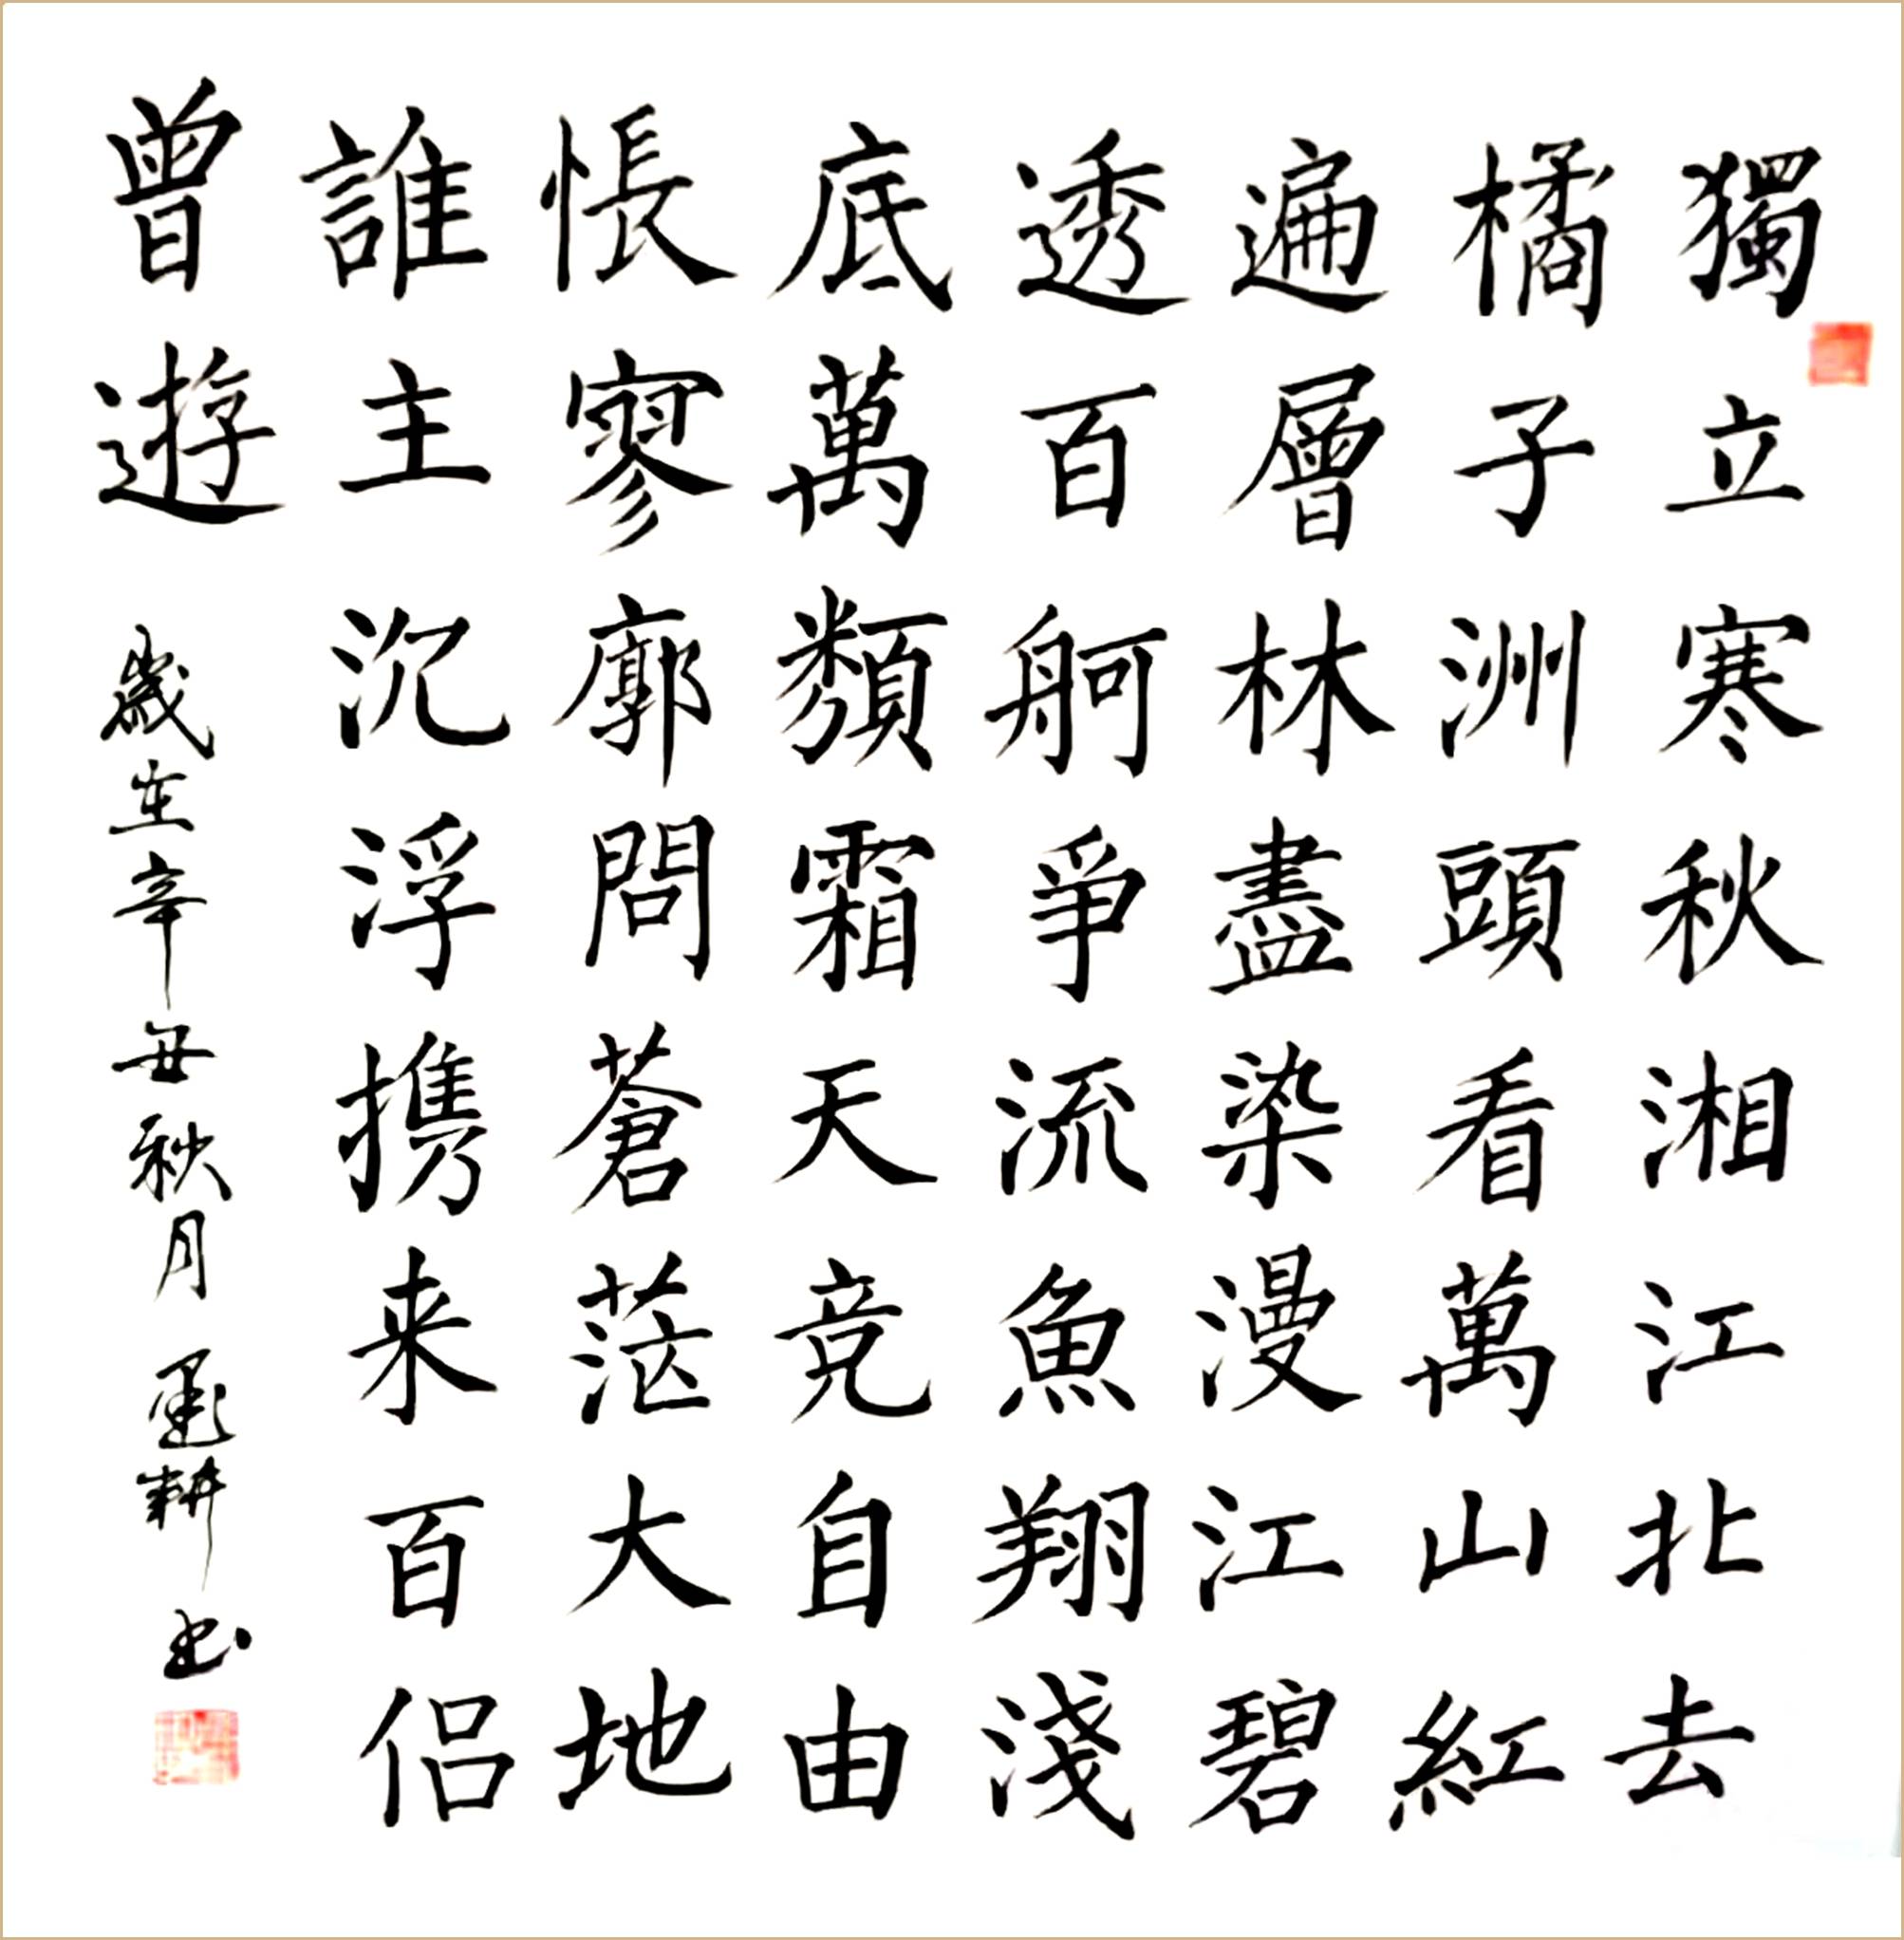 獨立寒秋湘江北去
橘子洲頭看萬山紅
遍層林盡染漫江碧
透百舸爭流魚翔淺
底萬類霜天竞自由
悵寥廓問蒼茫大地
誰主沉浮携来百侣
曾遊
歲在辛丑秋月 墨耕书